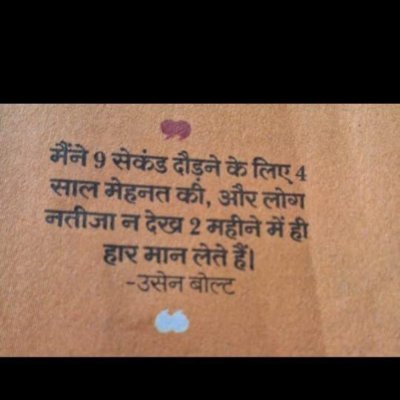 मैंने 9 सेकंड दौड़ने के लिए 4
साल मेहनत की, और लोग
नतीजा न देख 2 महीने में ही
हार मान लेते हैं।
-उसेन बोल्ट